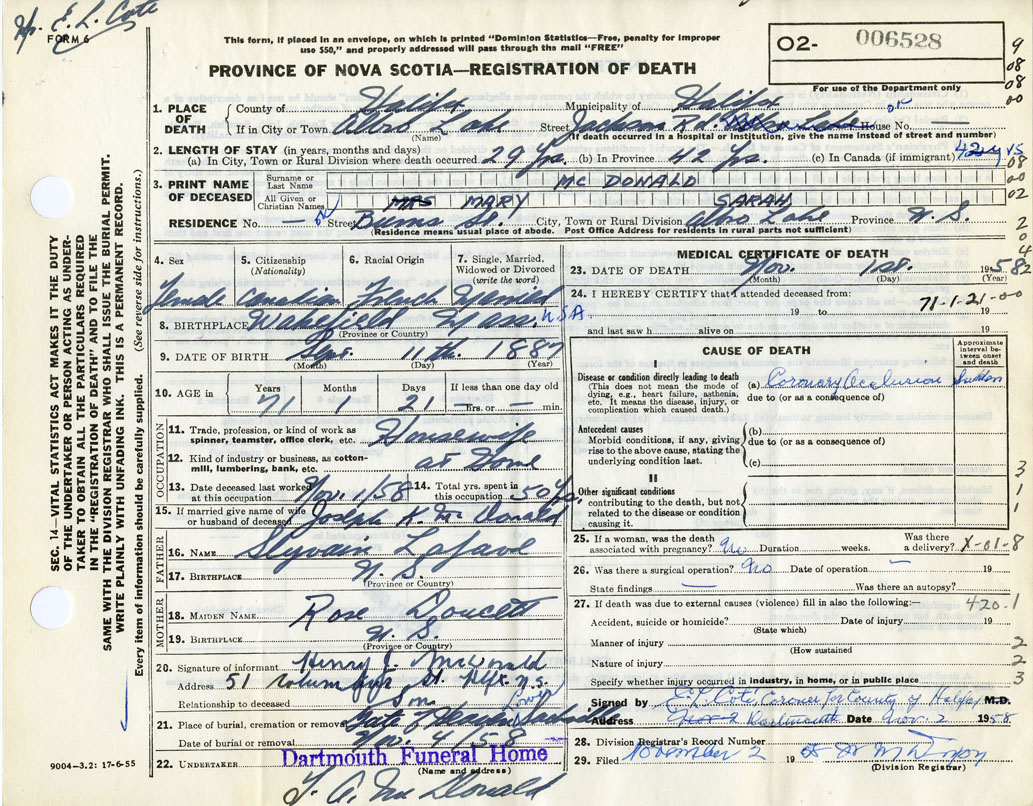 Mr. E. L. Cote
FORM 6
This form, if placed in an envelope, on which is printed "Dominion Statistics—Free, penalty for improper
use $50," and properly addressed will pass through the mail "FREE"
PROVINCE OF NOVA SCOTIA—REGISTRATION OF DEATH
O2- 006528
For use of the Department only
9
08
08
00
1. PLACE OF DEATH
County of Halifax Municipality of Halifax
If in City or Town Albro Lake Street Jackson Rd. House No. —
(Name) (If death occurred in a hospital or institution, give the name instead of street and number)
2. LENGTH OF STAY (in years, months and days)
(a) In City, Town or Rural Division where death occurred 29 Yrs. (b) In Province 42 Yrs. (c) In Canada (if immigrant) 42 yrs
08
3. PRINT NAME OF DECEASED
Surname or Last Name MC DONALD
00
All Given or Christian Names MRS MARY SARAH
02
RESIDENCE No. — Street Burns St. City, Town or Rural Division Albro Lake Province N. S.
(Residence means usual place of abode. Post Office Address for residents in rural parts not sufficient)
2
0
4
4. Sex Female
5. Citizenship (Nationality) Canadian
6. Racial Origin French
7. Single, Married, Widowed or Divorced (write the word) Married
8. BIRTHPLACE Wakefield Mass. USA
(Province or Country)
9. DATE OF BIRTH Sept. 11th. 1887
(Month) (Day) (Year)
10. AGE in Years Months Days If less than one day old
71 1 21 — hrs. or — min.
OCCUPATION
11. Trade, profession, or kind of work as spinner, teamster, office clerk, etc. Housewife
12. Kind of industry or business, as cotton-mill, lumbering, bank, etc. at Home
13. Date deceased last worked at this occupation Nov. 1/58 14. Total yrs. spent in this occupation 50 Yrs.
15. If married give name of wife or husband of deceased Joseph H. McDonald
FATHER
16. NAME Slyvain Lafave
17. BIRTHPLACE N. S.
(Province or Country)
MOTHER
18. MAIDEN NAME Rose Doucett
19. BIRTHPLACE N. S.
(Province or Country)
20. Signature of informant Henry J. McDonald
Address 51 St. Hfx. N.S.
Relationship to deceased Son
21. Place of burial, cremation or removal
Date of burial or removal Nov. 4/58
22. UNDERTAKER Dartmouth Funeral Home
(Name and address)
9004—3.2: 17-6-55
T. A. McDonald
MEDICAL CERTIFICATE OF DEATH
23. DATE OF DEATH Nov. 1st. 1958
(Month) (Day) (Year)
2
24. I HEREBY CERTIFY that I attended deceased from:
71-1-21-00
19 to 19
and last saw h alive on 19
CAUSE OF DEATH
Approximate interval between onset and death
I
Disease or condition directly leading to death
(This does not mean the mode of dying, e.g., heart failure, asthenia, etc. It means the disease, injury, or complication which caused death.)
(a) Coronary Occlusion Sudden
due to (or as a consequence of)
Antecedent causes
Morbid conditions, if any, giving rise to the above cause, stating the underlying condition last.
(b)
due to (or as a consequence of)
(c)
II
Other significant conditions
contributing to the death, but not related to the disease or condition causing it.
3
1
1
25. If a woman, was the death associated with pregnancy? No Duration weeks. Was there a delivery? X-01-8
26. Was there a surgical operation? No Date of operation — 19
State findings — Was there an autopsy?
27. If death was due to external causes (violence) fill in also the following:— 420.1
Accident, suicide or homicide? Date of injury 19
(State which)
Manner of injury 2
(How sustained
Nature of injury 2
Specify whether injury occurred in industry, in home, or in public place 3
Signed by E. L. Cote, Coroner for County of Halifax, M.D.
Address Dartmouth Date Nov. 2 1958
28. Division Registrar's Record Number
29. Filed November 2 19 58
(Division Registrar)
SEC. 14—VITAL STATISTICS ACT MAKES IT THE DUTY
OF THE UNDERTAKER OR PERSON ACTING AS UNDER-
TAKER TO OBTAIN ALL THE PARTICULARS REQUIRED
IN THE "REGISTRATION OF DEATH" AND TO FILE THE
SAME WITH THE DIVISION REGISTRAR WHO SHALL ISSUE THE BURIAL PERMIT.
WRITE PLAINLY WITH UNFADING INK. THIS IS A PERMANENT RECORD.
Every item of information should be carefully supplied. (See reverse side for instructions.)